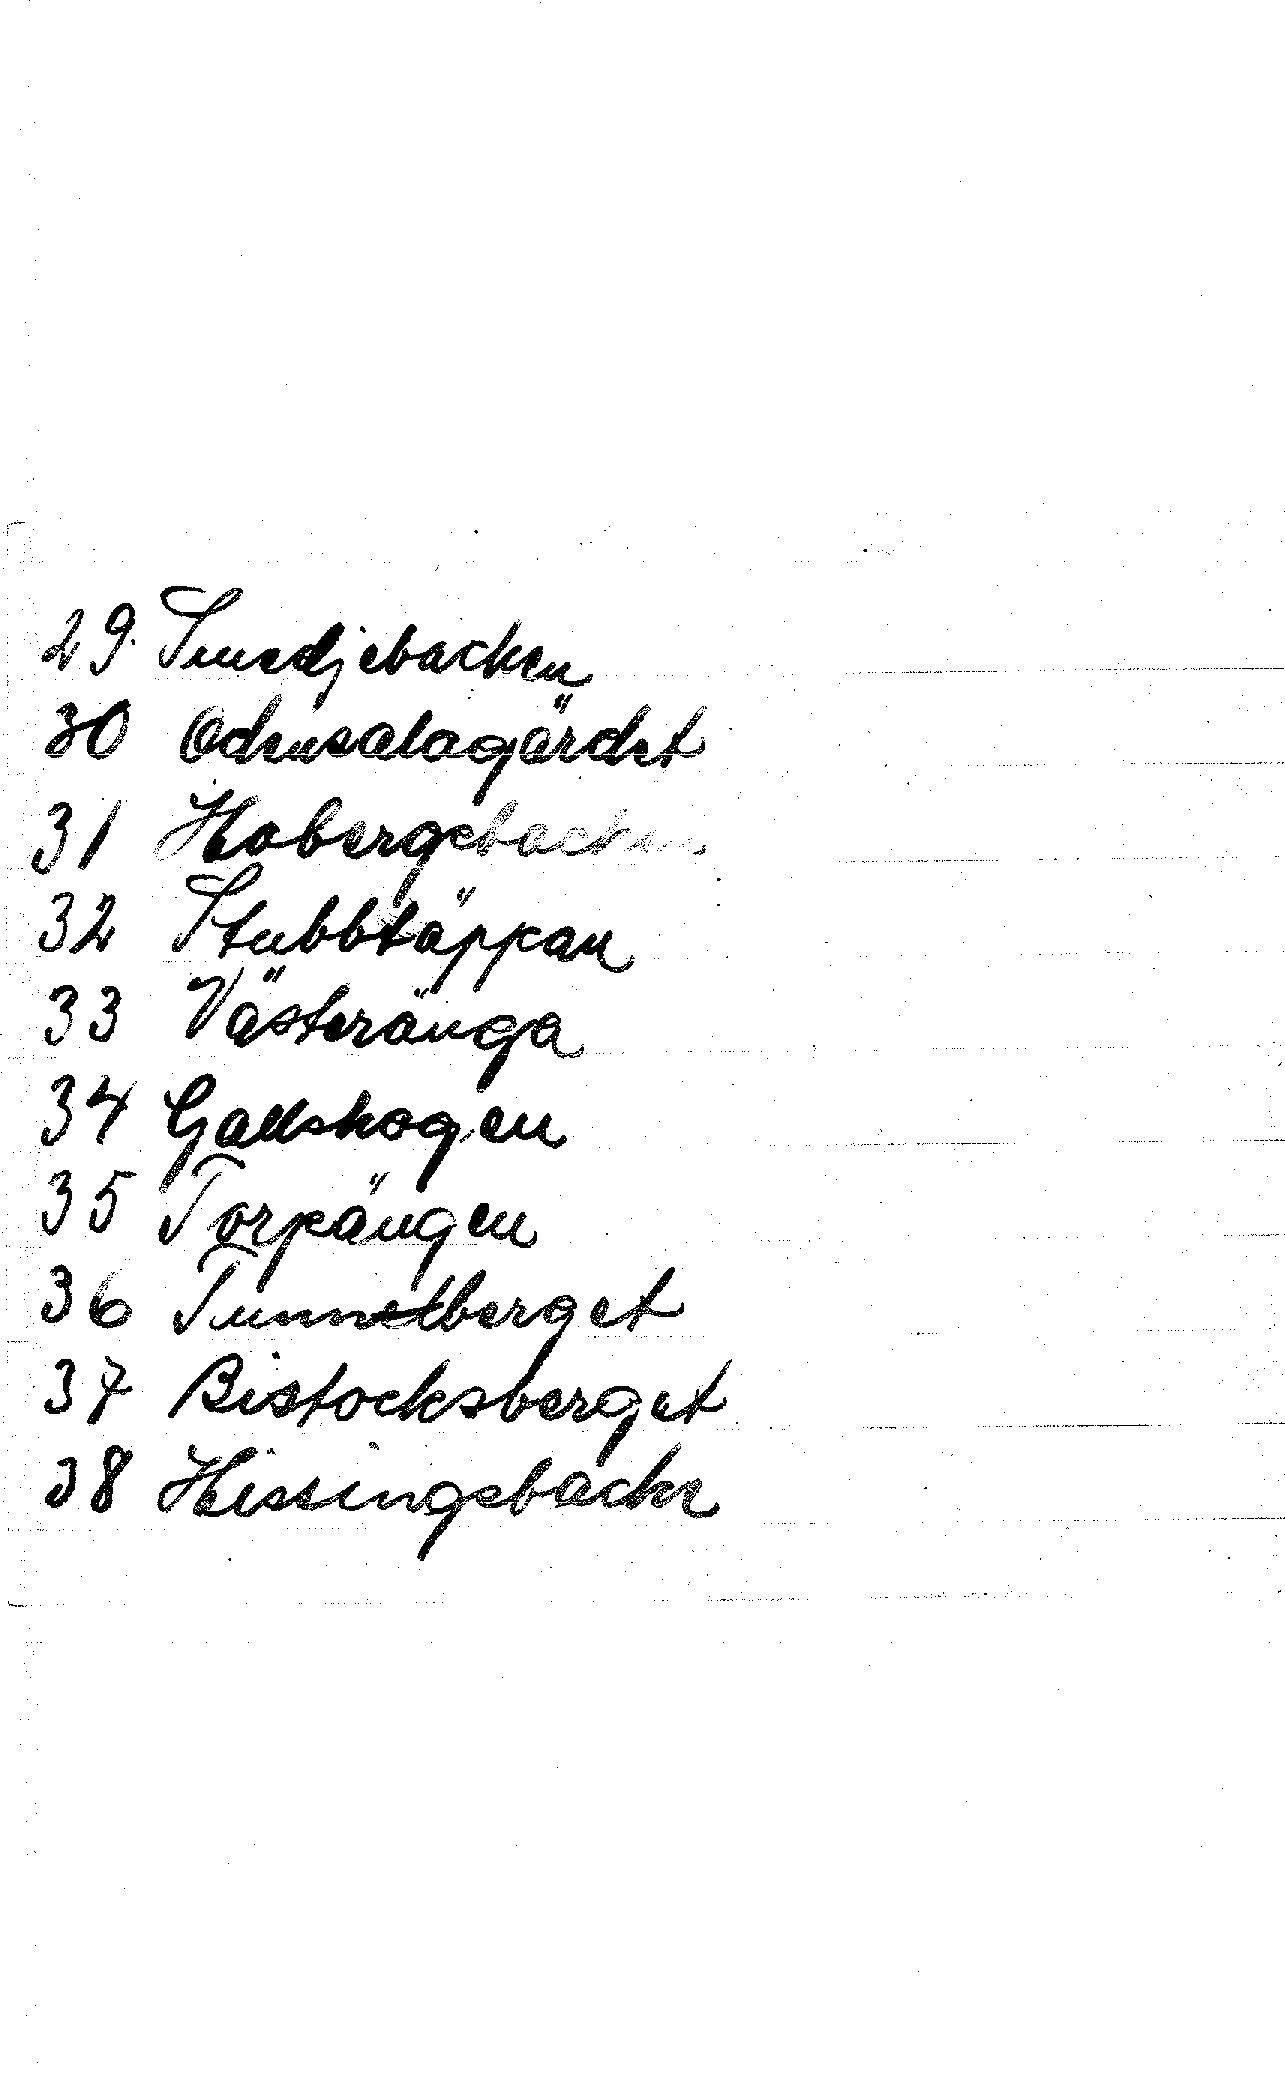 29. Smedjebacken
30 Odensalagärdet
31 Hobergebacken
32 Stubbtäppan
33 Västeränga
34 Gallskogen
35 Torpängen
36 Tunnelberget
37 Bistocksberget
38 Hissingebacke